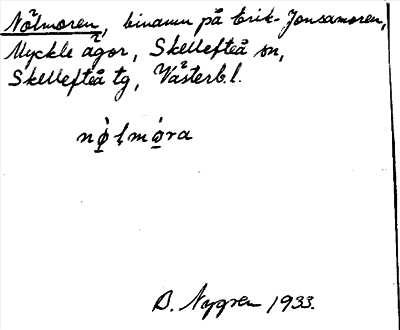 Nölmoren, binamn på Erik-Jonsamoren,
Myckle ägor, Skellefteå sn,
Skellefteå tg, Västerb. l.
nø̀lmø̀ra
B. Nygren 1933.